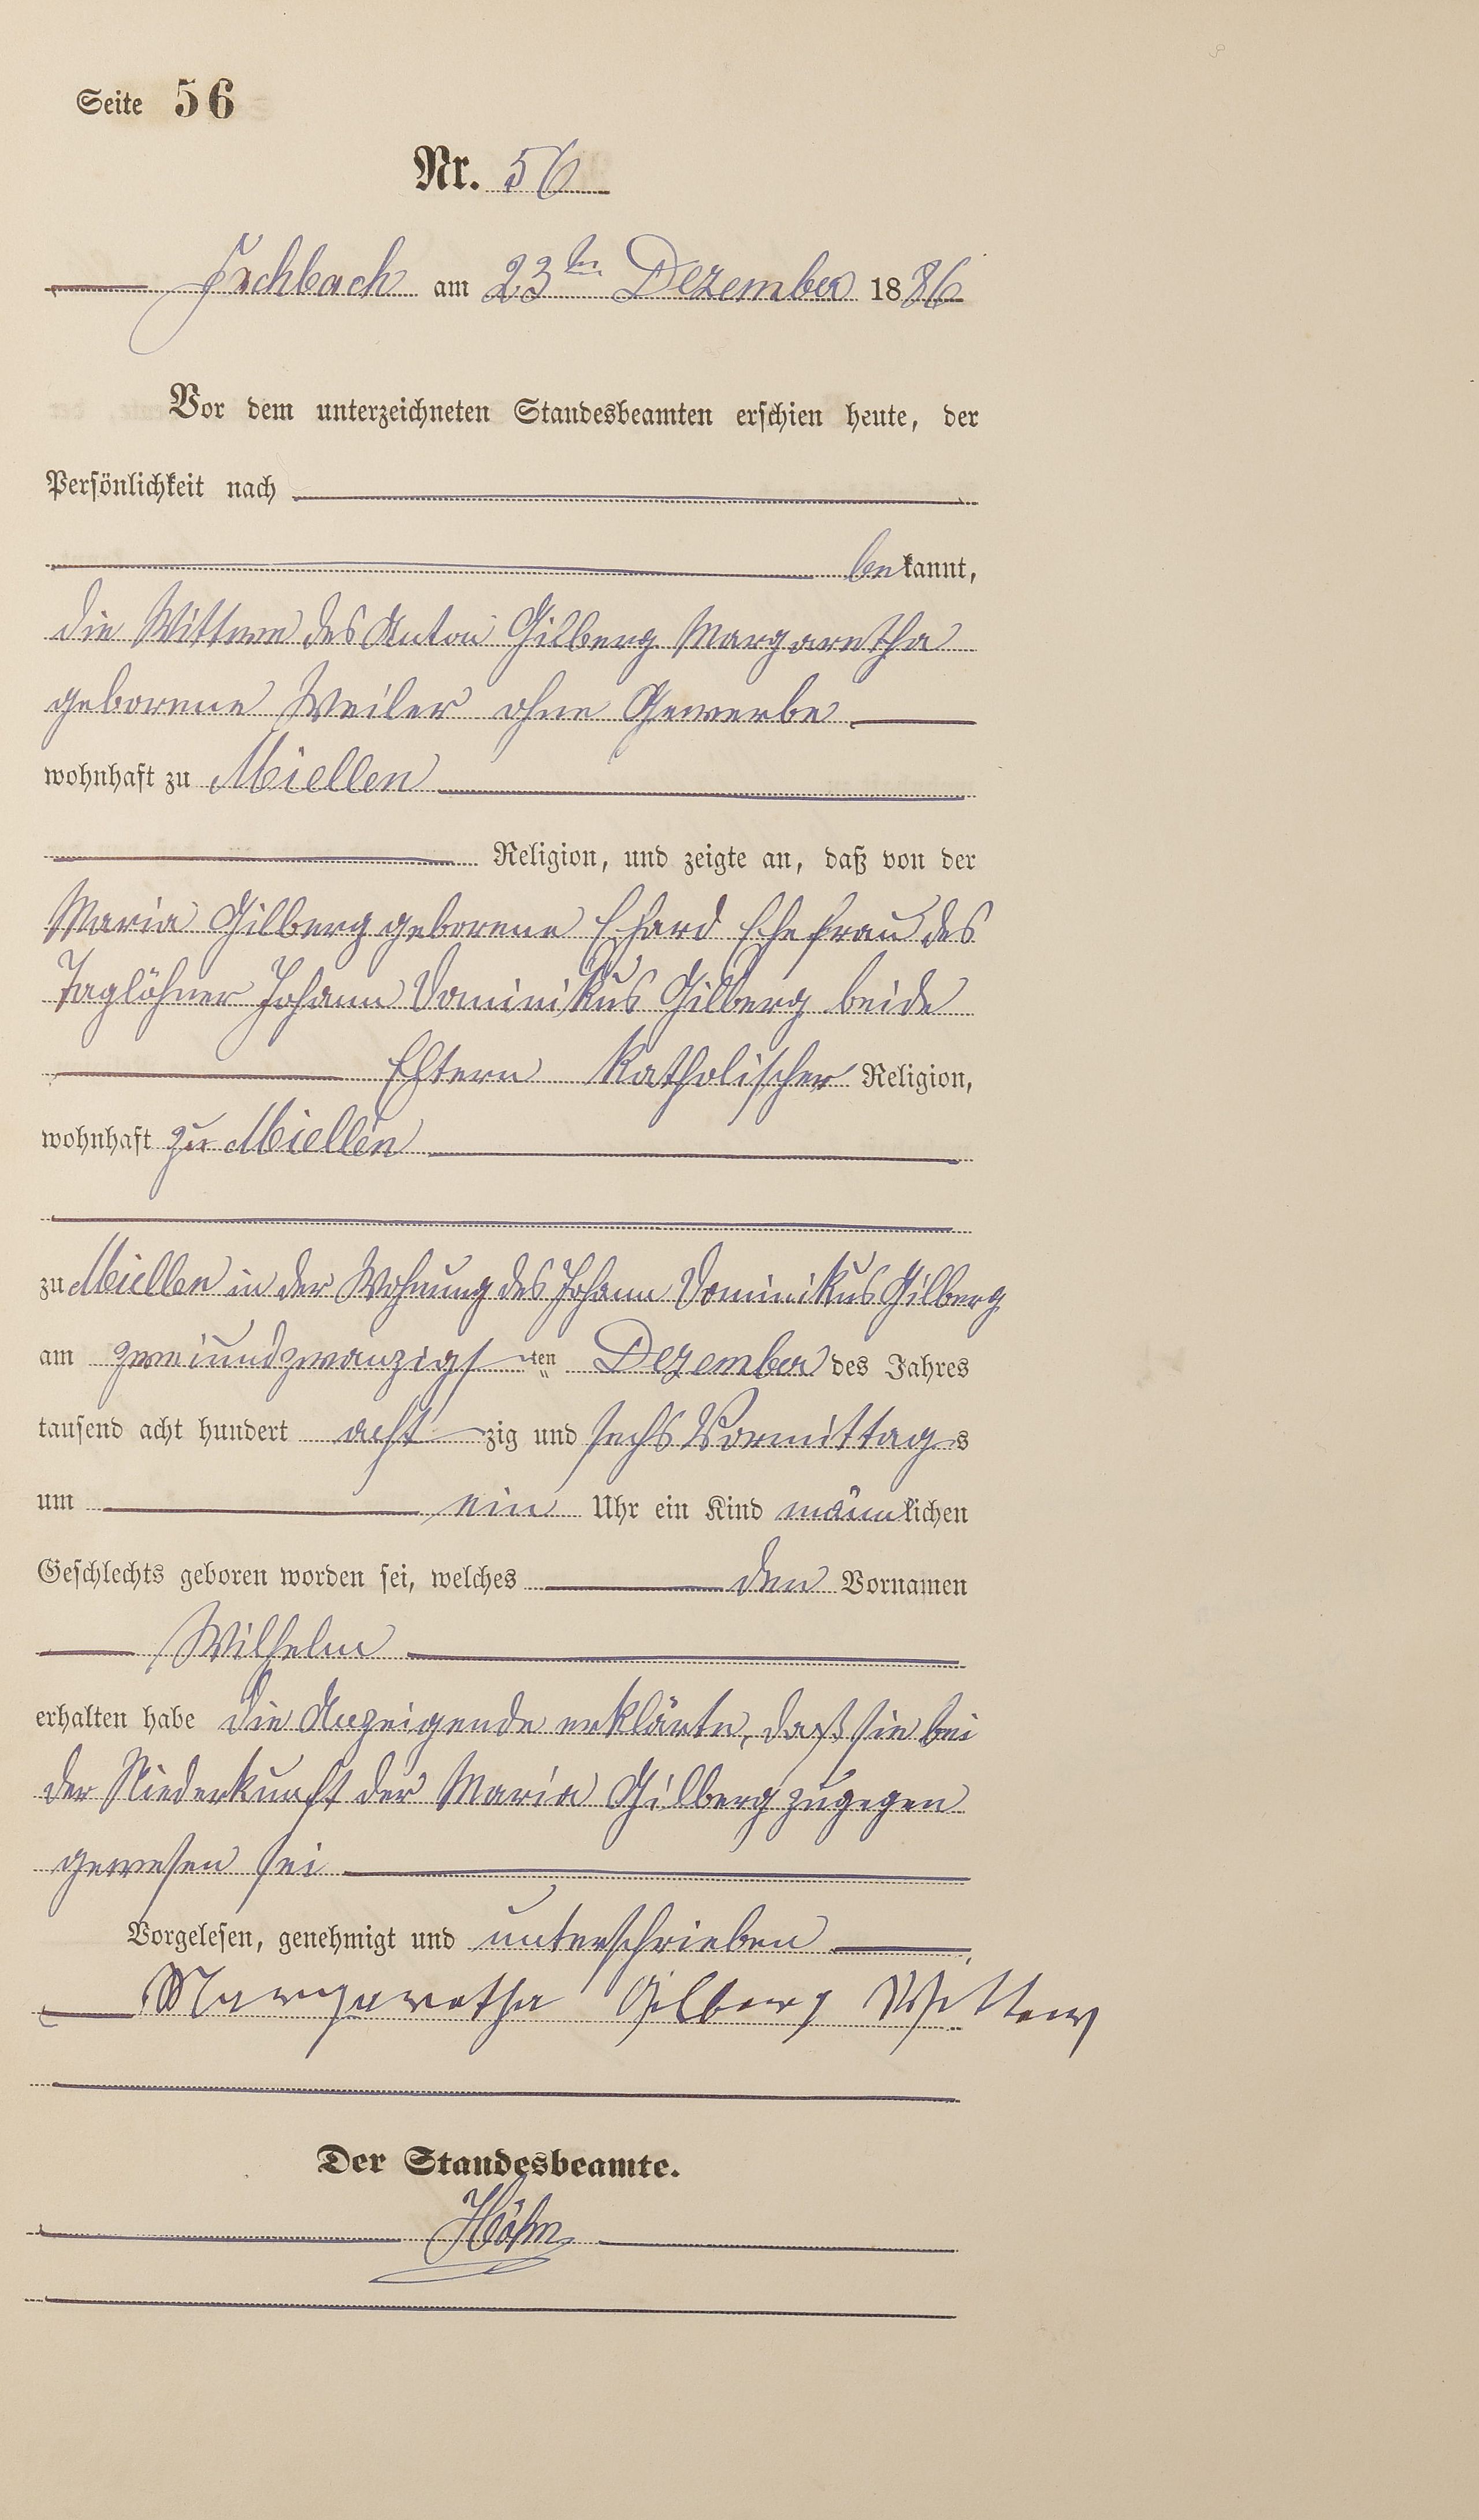 Seite 56
Nr. 56
Fachbach am 23ten Dezember 1886
Vor dem unterzeichneten Standesbeamten erschien heute, der
Persönlichkeit nach
bekannt,
die Wittwe des Anton Gilberg Margaretha
geborene Weiler ohne Gewerbe
wohnhaft zu Miellen
Religion, und zeigte an, daß von der
Maria Gilberg geborene Ehard Ehefrau des
Taglöhner Johann Dominikus Gilberg beide
Eltern katholischer Religion,
wohnhaft zu Miellen
zu Miellen in der Wohnung des Johann Dominikus Gilberg
am zweiundzwanzigsten Dezember des Jahres
tausend acht hundert achtzig und sechs Vormittags
um ein Uhr ein Kind männlichen
Geschlechts geboren worden sei, welches den Vornamen
Wilhelm
erhalten habe die Anzeigende erklärte, daß sie bei
der Niederkunft der Maria Gilberg zugegen
gewesen sei
Vorgelesen, genehmigt und unterschrieben
Margaretha Gilberg Wittew
Der Standesbeamte.
Höhn